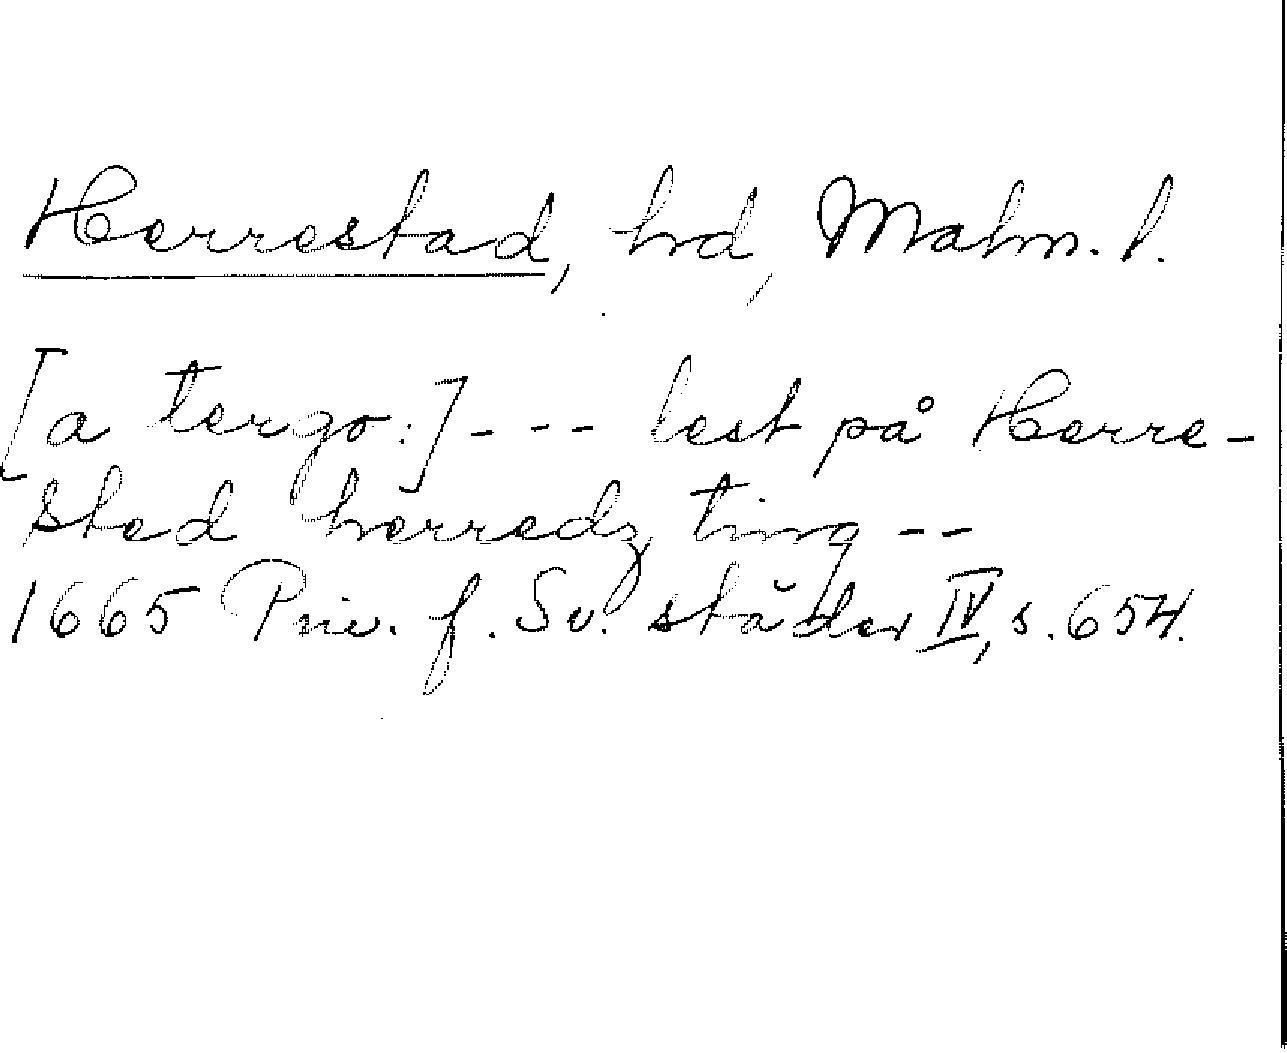 Herrestad, hd, Malm. l.
[a tergo:] --- lest på Herre-
sted herredz ting --
1665 Priv. f. Sv. städer IV, s. 654.